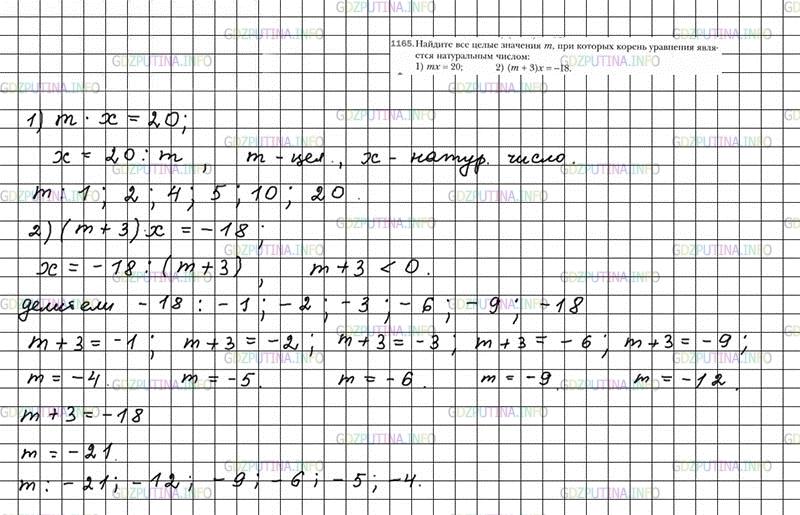 1165. Найдите все целые значения m, при которых корень уравнения явля-
ется натуральным числом:
1) mx = 20; 2) (m + 3)x = –18.
1) m · x = 20;
x = 20 : m , m - цел., x - натур. число.
m : 1 ; 2 ; 4 ; 5 ; 10 ; 20 .
2) (m + 3) · x = -18 ;
x = -18 : (m+3) , m + 3 < 0.
делители -18 : -1 ; -2 ; -3 ; -6 ; -9 ; -18
m + 3 = -1 ; m + 3 = -2 ; m + 3 = -3 ; m + 3 = -6 ; m + 3 = -9 ;
m = -4. m = -5. m = -6. m = -9. m = -12.
m + 3 = -18
m = -21.
m : -21 ; -12 ; -9 ; -6 ; -5 ; -4.
GDZPUTINA.INFO